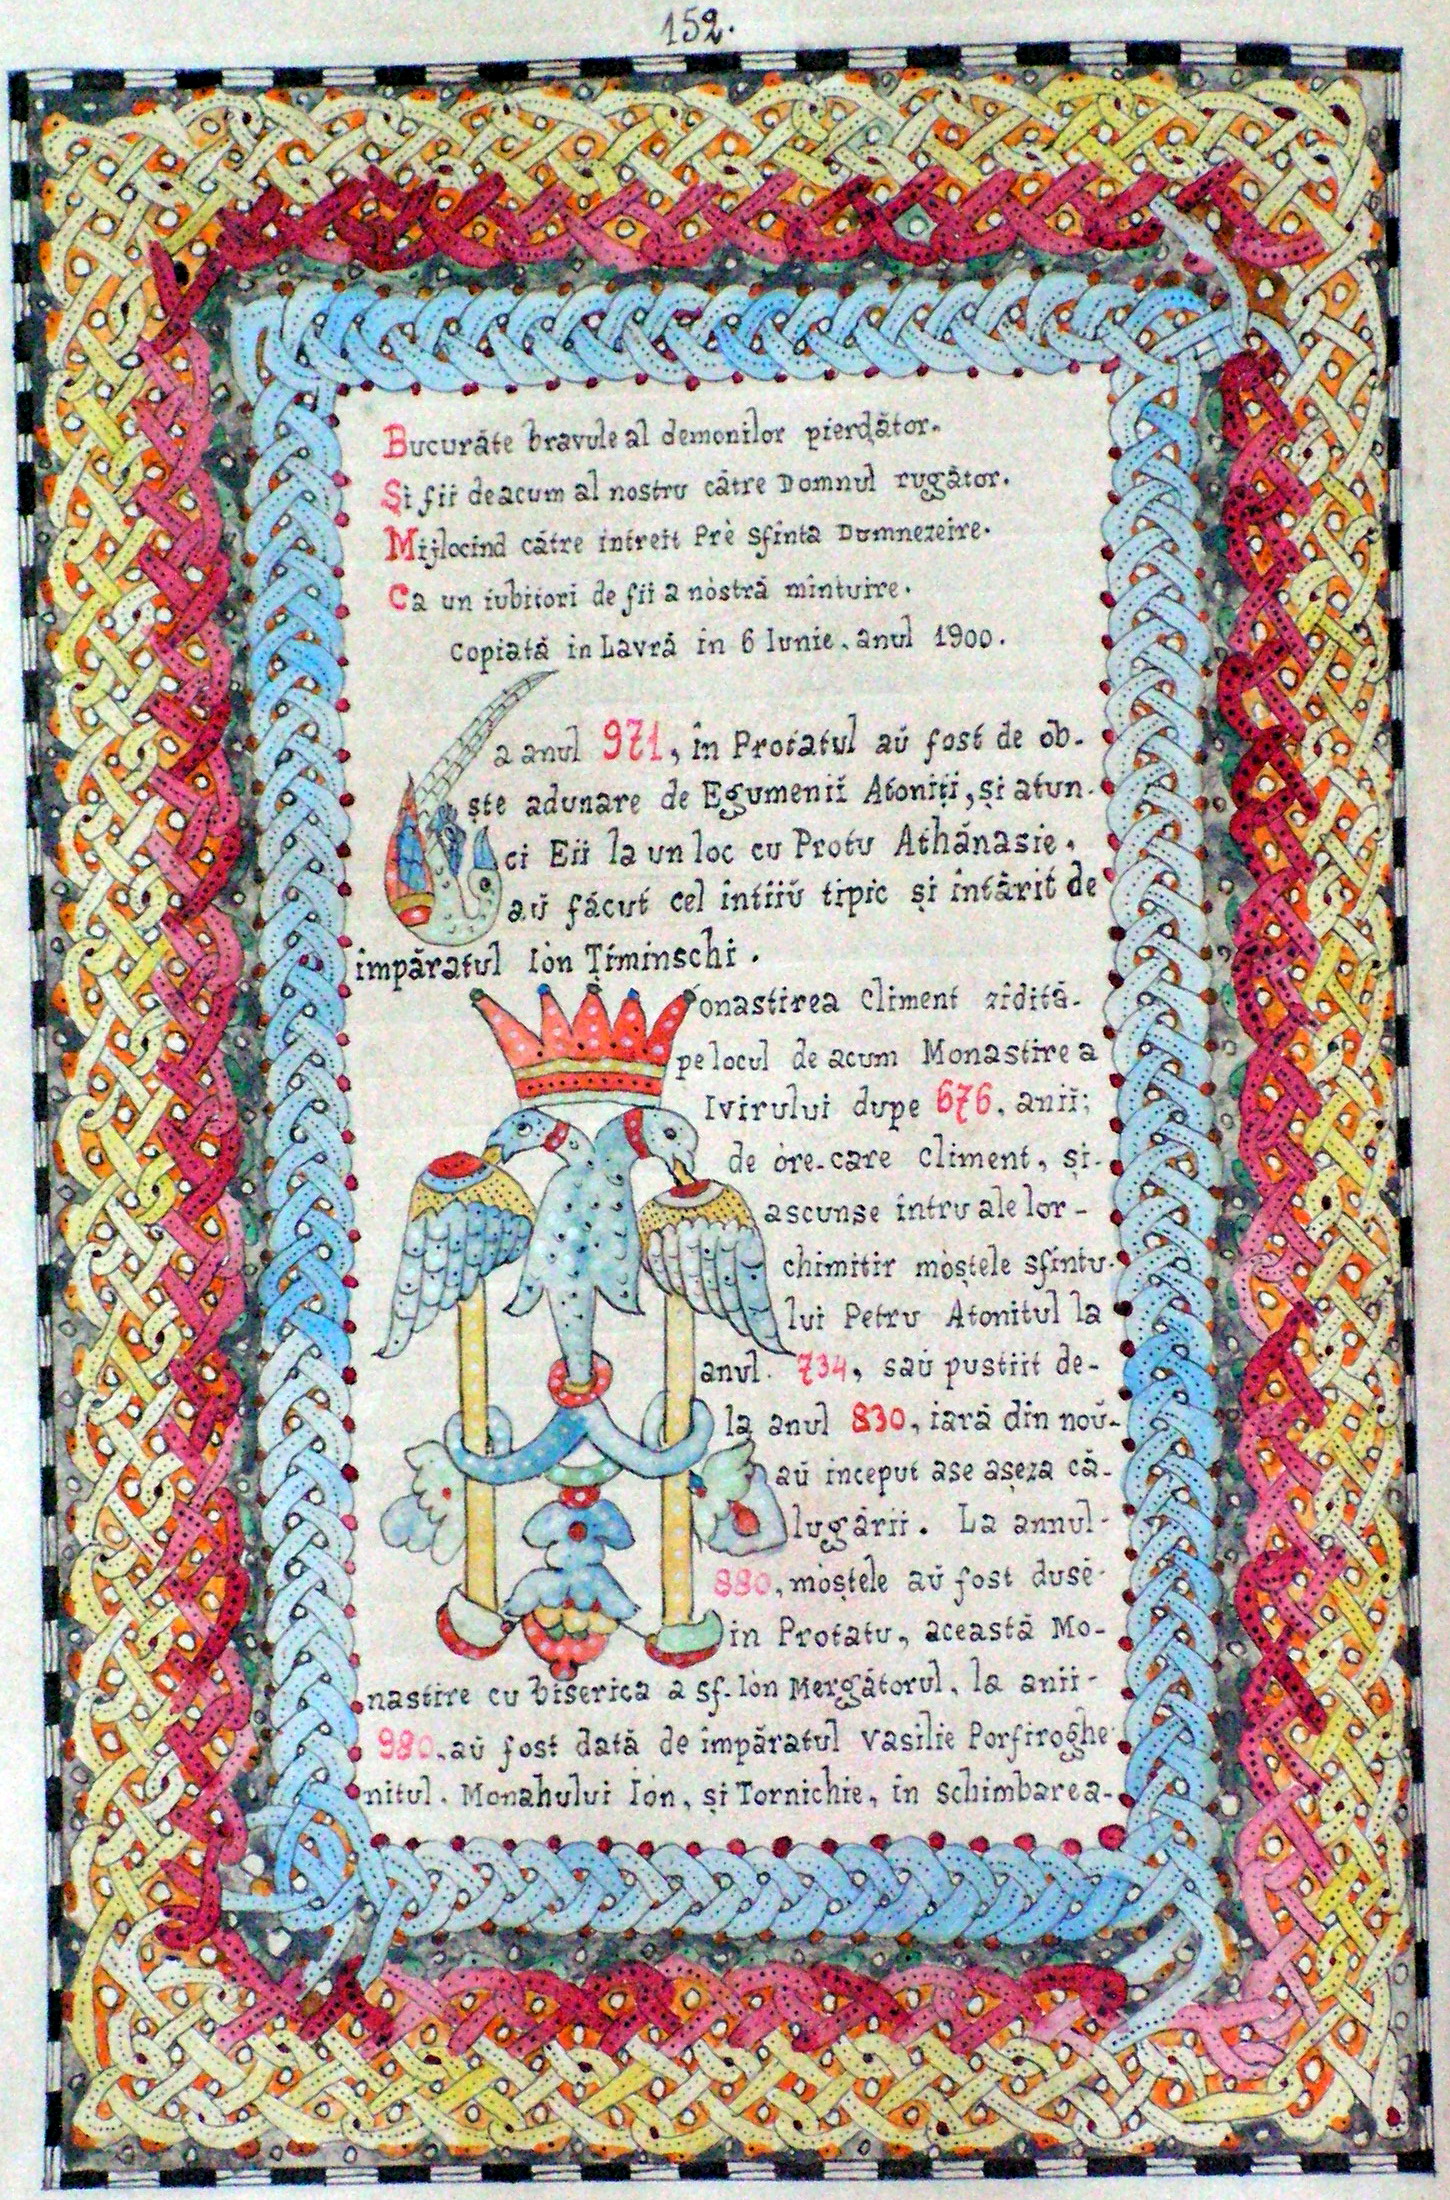 152.
Bucurăte bravule al demonilor pierdător.
Și fii deacum al nostru către Domnul rugător.
Mijlocind cătră intreit Prè Sfinta Dumnezeire.
Ca un iubitori de fii a nòstră mîntuire.
Copiată in Lavră in 6 Iunie. anul 1900.
La anul 971, în Protatul aŭ fost de ob-
ște adunare de Egumeniĭ Atoniți, și atun-
ci Eii la un loc cu Protu Athănasie.
aŭ făcut cel intiiŭ tipic și întărit de
împăratul Iòn Țiminschi.
Monastirea Climent zîdită-
pe locul de acum Monastirea
Ivirului dupe 676. anii;
de òre-care Climent, și-
ascunse intru ale lor-
chimitir mòștele sfintu-
lui Petru Atonitul la
anul. 734, saŭ pustiit de-
la anul 830, iară din noŭ-
aŭ inceput ase așeza că-
lugării. La annul-
880, mòștele aŭ fost duse-
in Protatu, această Mo-
nastire cu biserica a sf. Iòn Mergătorul, la anii-
980. aŭ fost dată de împăratul Vasilie Porfiroghe
nitul. Monahului Iòn, și Tornichie, în schimbarea-